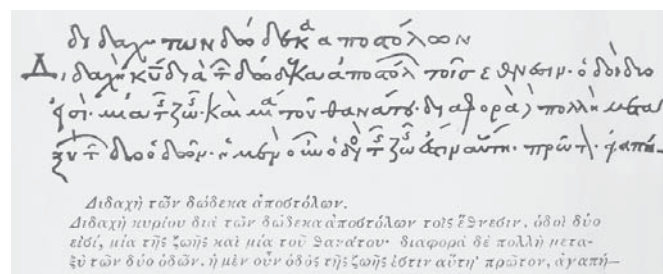 διδαχὴ τῶν δώδεκα ἀποστόλων
Διδαχὴ κυ διὰ τ δώδεκα ἀποστόλ τοῖς ἔθνεσιν· ὁδοὶ δύο
εἰσί· μία τ ζω καὶ μία τοῦ θανάτου· διαφορὰ πολλὴ μετα
ξὺ τ δύο ὁδῶν· ἡ μὲν οὖν ὁδὸ τ ζω ἐστιν αὕτη· πρῶτ· ἀγαπή—
Διδαχὴ τῶν δώδεκα ἀποστόλων.
Διδαχὴ κυρίου διὰ τῶν δώδεκα ἀποστόλων τοῖς ἔθνεσιν. ὁδοὶ δύο
εἰσί, μία τῆς ζωῆς καὶ μία τοῦ θανάτου· διαφορὰ δὲ πολλὴ μετα-
ξὺ τῶν δύο ὁδῶν. ἡ μὲν οὖν ὁδὸς τῆς ζωῆς ἐστιν αὕτη· πρῶτον, ἀγαπή—